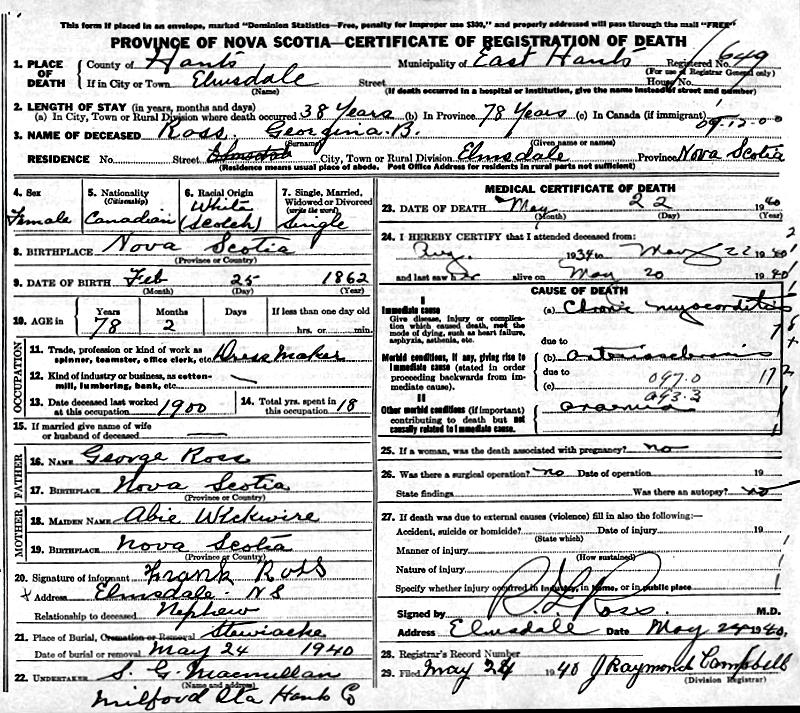 This form if placed in an envelope, marked "Dominion Statistics—Free, penalty for improper use $300," and properly addressed will pass through the mail "FREE"
PROVINCE OF NOVA SCOTIA—CERTIFICATE OF REGISTRATION OF DEATH
1. PLACE OF DEATH County of Hants Municipality of East Hants Registered No. 649
(For use of Registrar General only)
If in City or Town Elmsdale Street House No.
(Name) (If death occurred in a hospital or institution, give the name instead of street and number)
2. LENGTH OF STAY (in years, months and days)
(a) In City, Town or Rural Division where death occurred 38 Years (b) In Province 78 Years (c) In Canada (if immigrant)
3. NAME OF DECEASED Ross, Georgina B.
(Surname) (Given name or names)
RESIDENCE No. Street City, Town or Rural Division Elmsdale Province Nova Scotia
(Residence means usual place of abode. Post Office Address for residents in rural parts not sufficient)
4. Sex Female
5. Nationality (Citizenship) Canadian
6. Racial Origin White (Scotch)
7. Single, Married, Widowed or Divorced (write the word) Single
8. BIRTHPLACE Nova Scotia
(Province or Country)
9. DATE OF BIRTH Feb 25 1862
(Month) (Day) (Year)
10. AGE in Years Months Days If less than one day old
78 2 hrs. or min.
OCCUPATION
11. Trade, profession or kind of work as spinner, teamster, office clerk, etc. Dress Maker
12. Kind of industry or business, as cotton-mill, lumbering, bank, etc. —
13. Date deceased last worked at this occupation 1900
14. Total yrs. spent in this occupation 18
15. If married give name of wife or husband of deceased —
FATHER
16. NAME George Ross
17. BIRTHPLACE Nova Scotia
(Province or Country)
MOTHER
18. MAIDEN NAME Abie Wickwire
19. BIRTHPLACE Nova Scotia
(Province or Country)
20. Signature of informant Frank Ross
x Address Elmsdale N S
Relationship to deceased Nephew
21. Place of Burial, Cremation or Removal Stewiacke
Date of burial or removal May 24 1940
22. UNDERTAKER S. G. Macmillan
(Name and address)
Milford Sta Hants Co
MEDICAL CERTIFICATE OF DEATH
23. DATE OF DEATH May 22 1940
(Month) (Day) (Year)
24. I HEREBY CERTIFY that I attended deceased from:
Aug. 1934 to May 22 1940
and last saw her alive on May 20 1940
CAUSE OF DEATH
I
Immediate cause
Give disease, injury or complication which caused death, not the mode of dying, such as heart failure, asphyxia, asthenia, etc.
(a) Chronic myocarditis
due to
Morbid conditions, if any, giving rise to immediate cause (stated in order proceeding backwards from immediate cause).
(b) arteriosclerosis
due to
(c) 097.0
093.3
II
Other morbid conditions (if important) contributing to death but not causally related to immediate cause.
25. If a woman, was the death associated with pregnancy? no
26. Was there a surgical operation? no Date of operation 19
State findings Was there an autopsy? no
27. If death was due to external causes (violence) fill in also the following:—
Accident, suicide or homicide? Date of injury 19
(State which)
Manner of injury
(How sustained)
Nature of injury
Specify whether injury occurred in industry, in home, or in public place
Signed by Ross M.D.
Address Elmsdale Date May 24 1940
28. Registrar's Record Number
29. Filed May 24 1940 J Raymond Campbell
(Division Registrar)